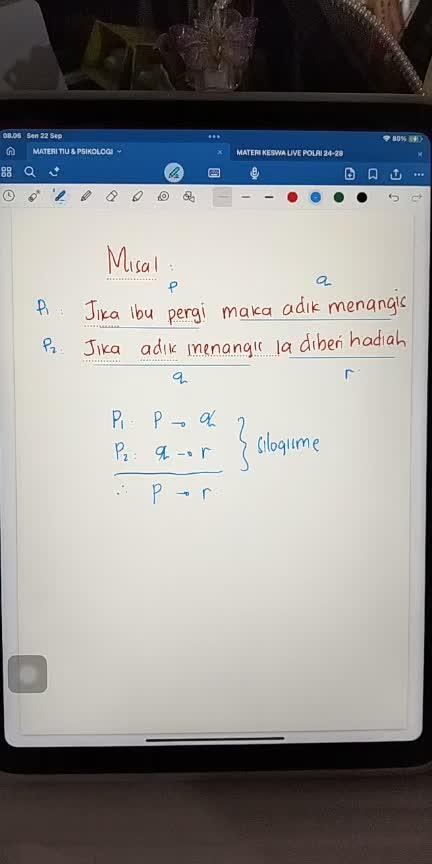 08.06 Sen 22 Sep
80%
MATERI TIU & PSIKOLOGI
MATERI KESWA LIVE POLRI 24-28
Misal :
p q
P1 : Jika ibu pergi maka adik menangis
P2 : Jika adik menangis ia diberi hadiah
q r
P1 : P → q
P2 : q → r
} silogisme
∴ P → r